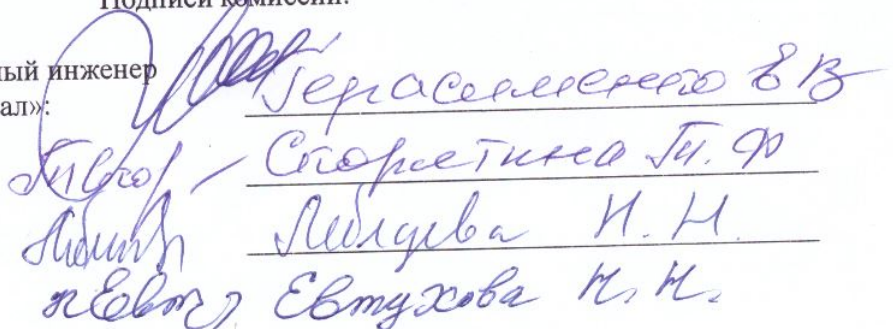 Подписи комиссии:
ный инженер
ал»:
Герасименко Е В
Т. Ф
Лебедева Н. Н.
Евтухова Н. Н.